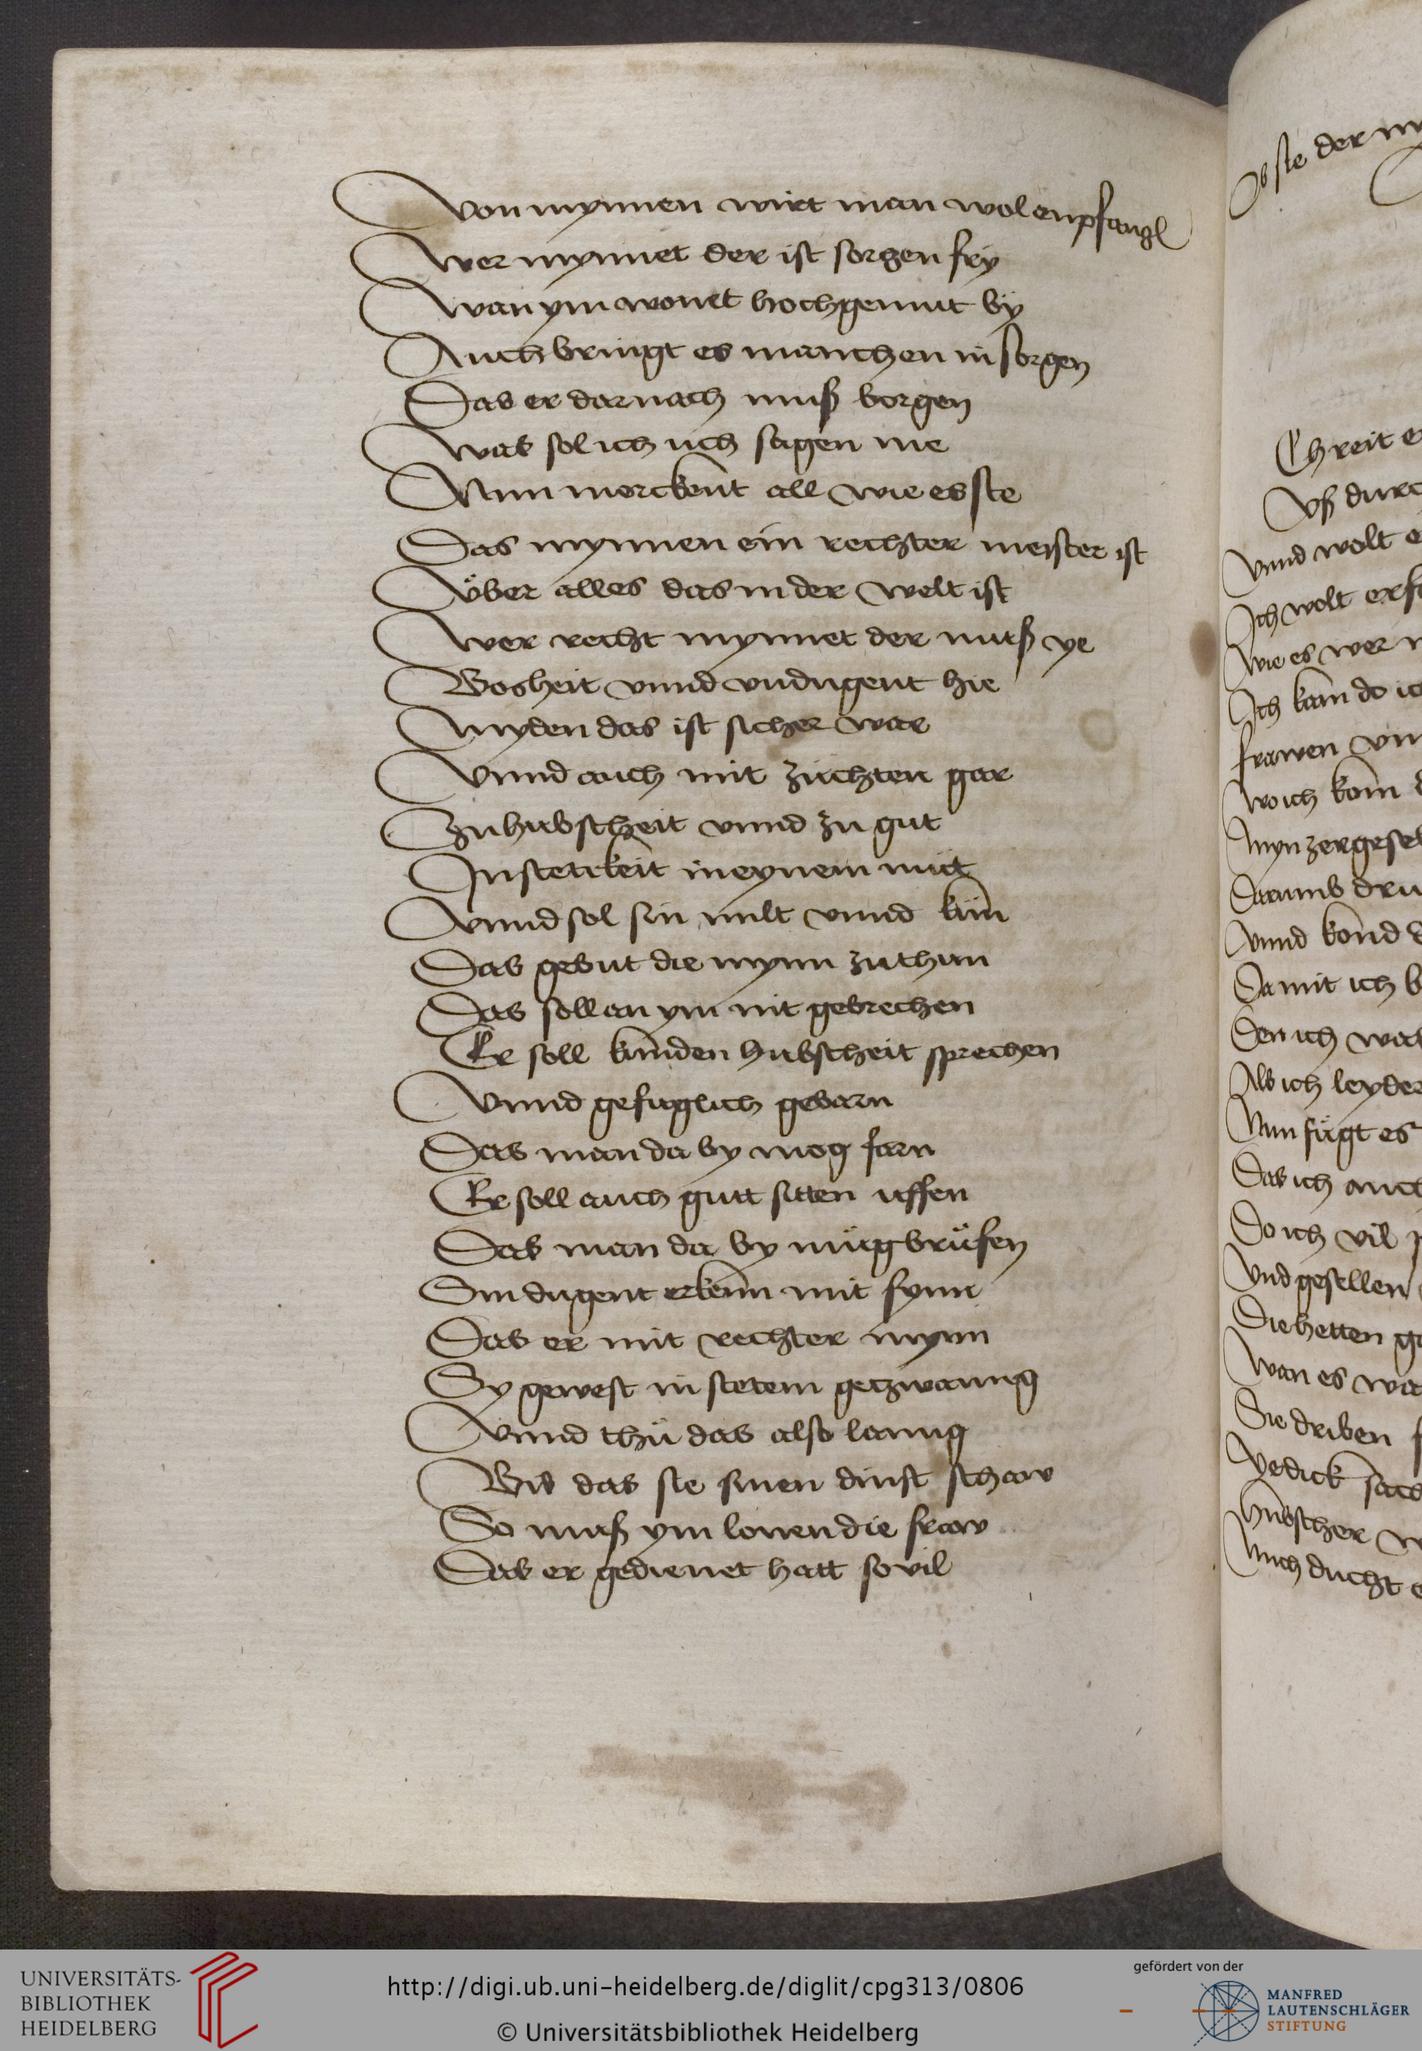 Von mynnen wirt man wol enpfangẽ
Wer mynnet der ist sorgen fry
Wan ym wonet hochgemut by
Auch bringt es manchen in sorgen
Das er darnach muß borgen
Was sol ich uch sagen me
Nun merckent all wie es ste
Das mynnen ein rechter meister ist
Über alles das in der welt ist
Wer recht mynnet der muß ye
Bosheit vnnd vndugent hie
Myden das ist sicher war
Vnnd auch mit züchten gar
Zu hubscheit vnnd zu gut
In stetickeit in eynem mut
Vnnd sol sin milt vnnd kün
Das gebut die mynn zu thun
Das soll an ym nit gebrechen
Er soll kunden hubscheit sprechen
Vnnd gefuglich gebarn
Das man da by mog farn
Er soll auch gutt sitten uffen
Das man da by müg brüfen
Sin dugent erkenn mit synn
Das er mit rechter mynn
Sy gewest in stetem getzwanng
Vnnd thü das also lanng
Bis das sie sinen dinst schaw
So muß ym lonen die fraw
Das er gedienet hatt so vil
Ob sie der
Ich reit
Vß durch
Vnnd wolt
Ich wolt
Wie es wer
Ich kam do
frawen
Wo ich kom
Myn zergesel
Darumb
Vnnd kond
Da mit ich
Den ich was
Als ich leyder
Nun fügt es
Das ich auch
Do ich vil
Vnd gesellen
Die hetten
Wan es was
Sie driben
Yedick sas
Hubscher
Mich ducht
UNIVERSITÄTS-
BIBLIOTHEK
HEIDELBERG
http://digi.ub.uni-heidelberg.de/diglit/cpg313/0806
© Universitätsbibliothek Heidelberg
gefördert von der
MANFRED
LAUTENSCHLÄGER
STIFTUNG